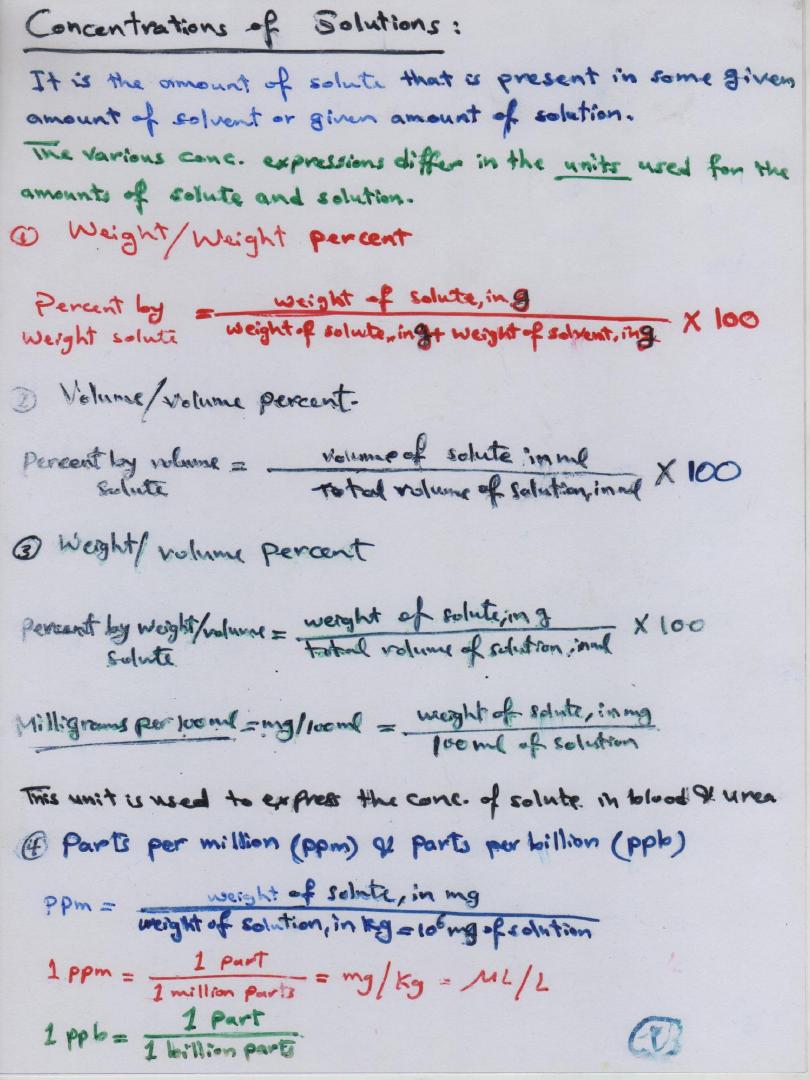 Concentrations of Solutions:
It is the amount of solute that is present in some given
amount of solvent or given amount of solution.
The various conc. expressions differ in the units used for the
amounts of solute and solution.
① Weight/Weight percent
Percent by weight solute = weight of solute, in g / weight of solute, in g + weight of solvent, in g × 100
② Volume/volume percent.
Percent by volume solute = volume of solute in ml / total volume of solution, in ml × 100
③ Weight/volume percent
percent by weight/volume solute = weight of solute, in g / total volume of solution, in ml × 100
Milligrams per 100 ml = mg/100 ml = weight of solute, in mg / 100 ml of solution
This unit is used to express the conc. of solute in blood & urea
④ Parts per million (ppm) & parts per billion (ppb)
ppm = weight of solute, in mg / weight of solution, in Kg = 10⁶ mg of solution
1 ppm = 1 part / 1 million parts = mg/Kg = ML/L
1 ppb = 1 part / 1 billion parts